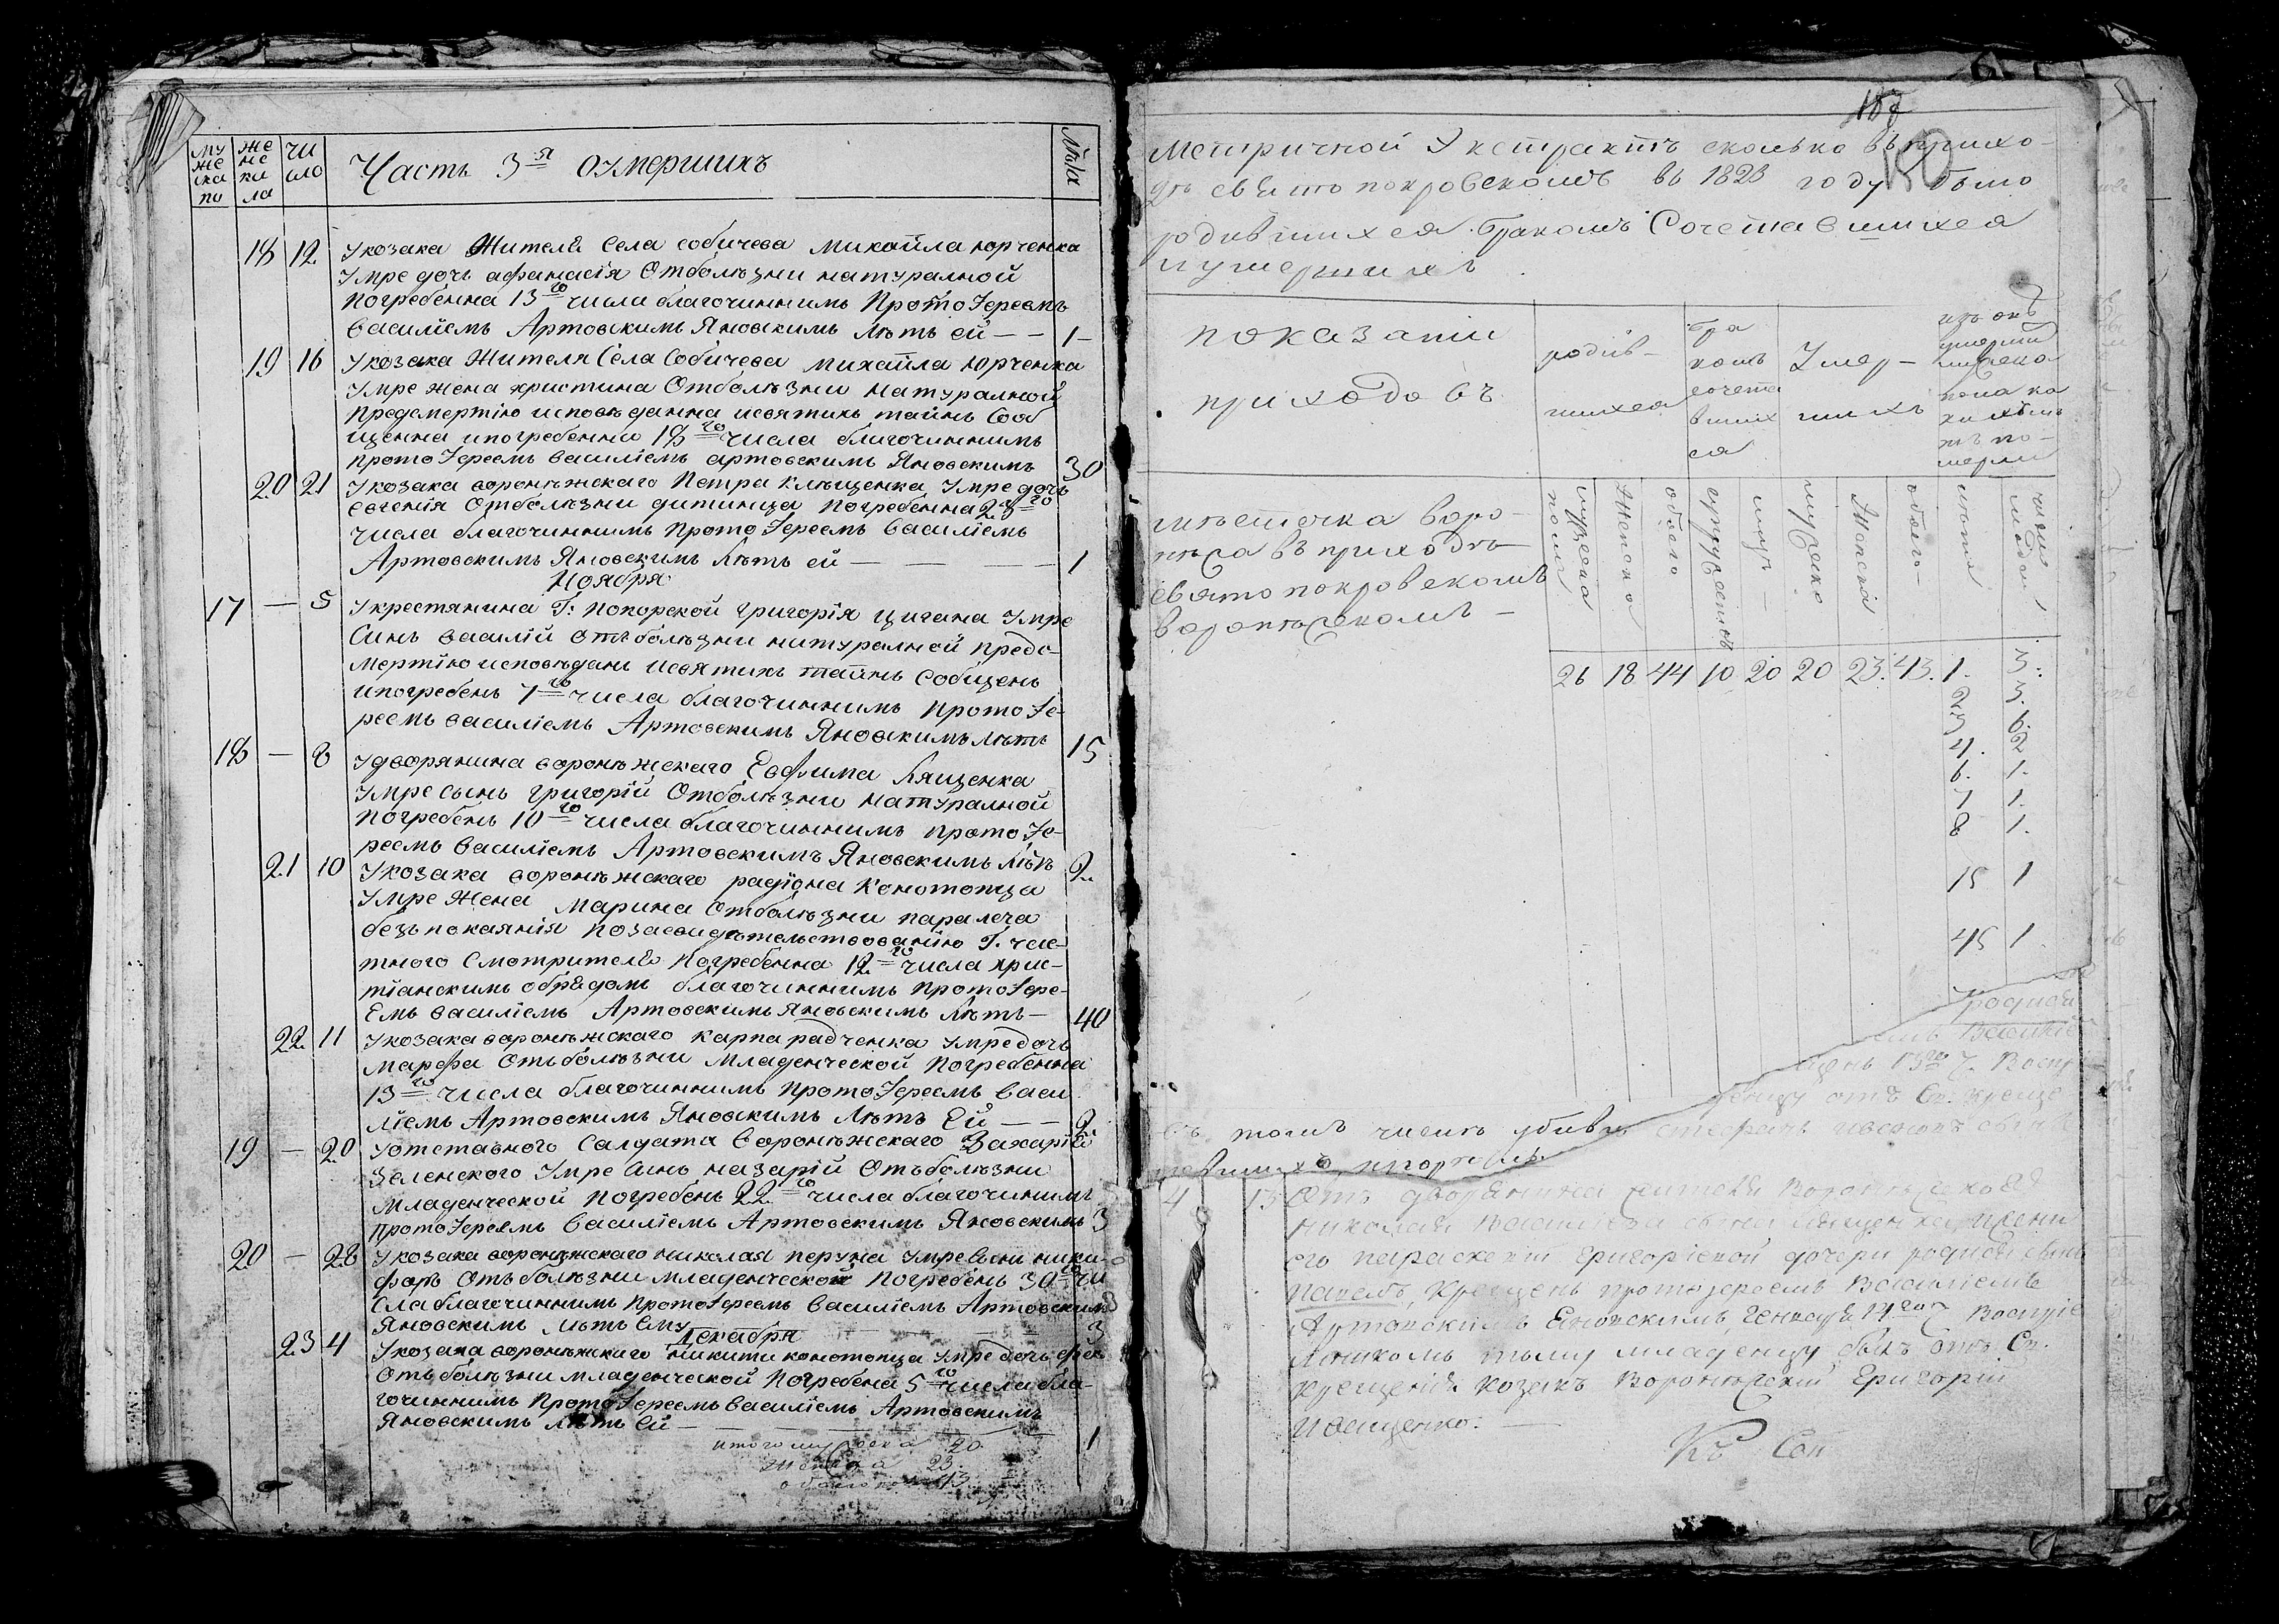 му же ска по
же не ки ла
чи сло
Часть 3я оумершихъ
Лѣта
18 12 Укозака Жителя Села собичева Михайла Юрченка
Умре дочь афанасія Отболѣзни натуралной
Погребенна 13го числа благочиннимъ ПротоІереемъ
Василіемъ Артовскимъ Яновскимъ Лѣтъ ей — — 1
19 16 Укозака Жителя Села Собичева Михайла Юрченка
Умре жена христина Отболѣзни Натуралной
предсмертію исповѣданна исвятихъ тайнъ Сооб
щенна ипогребенна 18го числа благочиннимъ
протоІереемъ василіемъ артовскимъ Яновскимъ 30
20 21 Укозака воронѣжскаго Петра Клѣщенка Умре дочь
евгенія Отболѣзни дитинца Погребенна 23го
числа благочиннимъ ПротоІереемъ Василіемъ
Артовскимъ Яновскимъ Лѣтъ ей — — — 1
Ноября
17 — 5 Укрестянина Г: Попорской григорія цигана Умре
Синъ василій Отъболѣзни натуралной предс
мертію исповѣданъ исвятихъ тайнъ Собщенъ
ипогребенъ 7го числа благочиннимъ ПротоІе-
реемъ василіемъ Артовскимъ Яновскимъ Лѣтъ 15
18 — 8 Удворянина воронѣжскаго Евфима Лященка
Умре сынъ григорій Отболѣзни Натуралной
Погребенъ 10го числа благочиннимъ протоІе-
реемъ Василіемъ Артовскимъ Яновскимъ Лѣтъ 2.
21 10 Укозака воронѣжскаго радіона Конотопца
Умре Жена Марина Отболѣзни паралеча
безъ покаянія Позасвидѣтельствованію Г. час-
тного Смотрителя Погребенна 12го числа хрис-
тіанскимъ обрядомъ благочиннимъ ПротоІере-
Емъ василіемъ Артовскимъ Яновскимъ Лѣтъ — 40
22 11 Укозака воронѣжскаго карпа радченка умре дочь
марфа Отъболѣзни Младенческой Погребенна
13го числа благочиннимъ ПротоІереемъ Васи
ліемъ Артовскимъ Яновскимъ Лѣтъ Ей — — 2.
19 — 20 Уотставного Салдата Воронѣжскаго Захарія
Зеленского Умре Синъ назарій Отъболѣзни
Младенческой Погребенъ 22го числа благочинимъ
протоІереемъ Василіемъ Артовскимъ Яновскимъ 3
20 — 28 Укозака воронѣжскаго николая перуна умре Синъ ники-
форъ Отъболѣзни младенческой Погребенъ 30го чи
Сла благочиннимъ протоІереемъ Василіемъ Артовскимъ
Яновскимъ Лѣтъ Ему — — — 3
Декабря
23 4 Укозака воронѣжскаго Никити конотопца Умре дочь
Отъболѣзни младенческой Погребена 5го числа бла-
гочиннимъ ПротоІереемъ Василіемъ Артовскимъ
Яновскимъ Лѣтъ Ей — — — 1
итого мужеска 20
женска 23.
обоего пола 43
Метричной Экстрактъ сколько въ прихо-
дѣ святопокровскомъ въ 1823 году было
родившихся бракомъ Сочетавшихся
и умершихъ.
показаніи
приходовъ
родив-
шихся
бра
комъ
сочета
вших
ся
Умер-
шихъ
мѣстечка воро-
нѣжа въ приходѣ
святопокровскомъ
воронѣжскомъ —
мужеска пола
Женска
обоего
супружествъ
лицъ —
мужеска
Женска
обоего
лѣта
число людей
26 18 44 10 20 20 23. 43. 1. 3.
2 3.
3 6.
4. 2
6. 1.
7 1.
8 1.
15 1
45 1.
родися
емъ Василіе
щенъ 13го ч. Воспр
денцу отъ Св. Креще
въ томъ числѣ
4 13 Отъ дворянина жителя Воронѣжскаго
николая Василіева сына Лященка жени
его параскевіи Григоріевой дочери родися сынъ
павелъ, Крещенъ протоіереемъ Василіемъ
Артовскимъ Яновскимъ Генваря 14го ч. Воспріе
мникомъ тому младенцу былъ отъ Св.
крещенія козакъ Воронѣжскій Григорій
Иващенко. —
Къ Сей